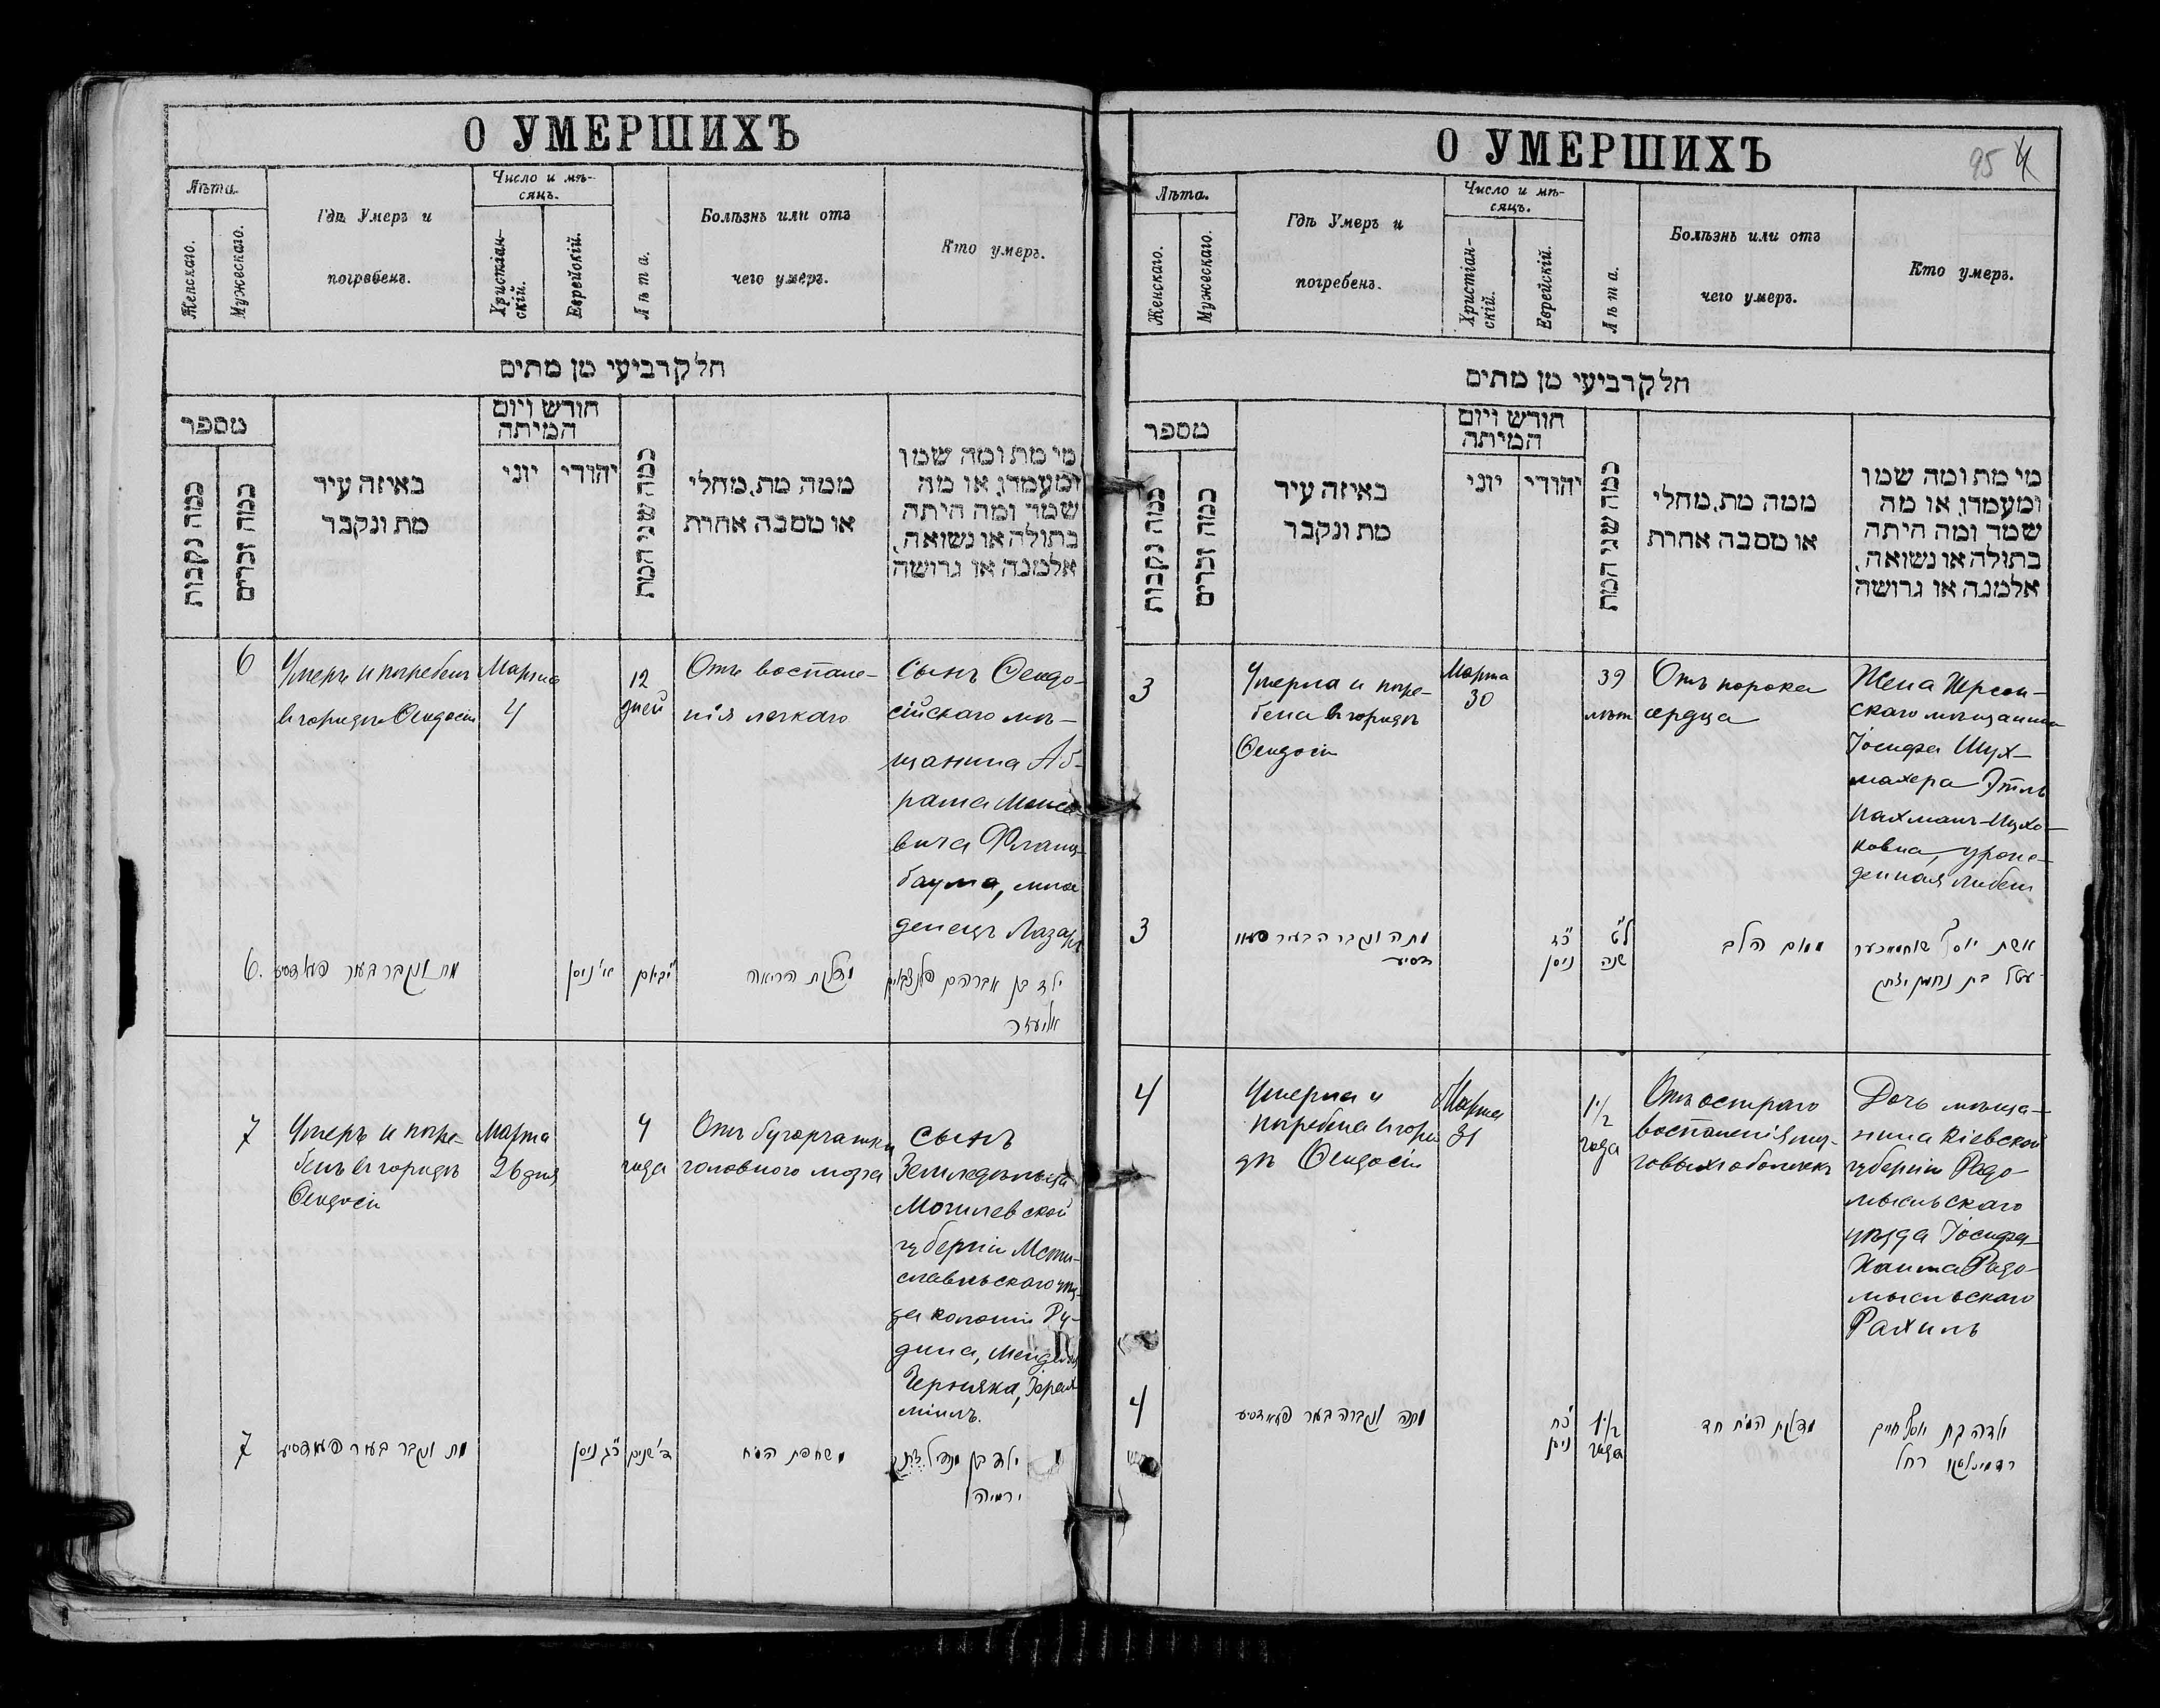 О УМЕРШИХЪ
Лѣта.
Женскаго.
Мужескаго.
Гдѣ Умеръ и
погребенъ.
Число и мѣ-
сяцъ.
Христіан-
скій.
Еврейскій.
Лѣта.
Болѣзнь или отъ
чего умеръ.
Кто умеръ.
חלק רביעי מן מתים
מספר
כמה נקבות
כמה זכרים
באיזה עיר
מת ונקבר
חודש ויום
המיתה
יוני
יהודי
כמה שני המת
ממה מת, מחלי
או מסבה אחרת
מי מת ומה שמו
ומעמדו, או מה
שמה ומה היתה
בתולה או נשואה,
אלמנה או גרושה
6
Умеръ и погребенъ
въ городѣ Ѳеодосіи
Марта
4
12
дней
Отъ воспале-
нія легкаго
Сынъ Ѳеодо-
сійскаго мѣ-
щанина Аб-
рама Моисе
вича
баума, мла
денецъ Лазарь
6.
מת ונקבר בעיר
ניסן
דלקת הריאה
ילד בן אברהם
אליעזר
7
Умеръ и погре-
бенъ въ городѣ
Ѳеодосіи
Марта
26 дня
4
года
Отъ бугорчатки
головного мозга
Сынъ
Земледѣльца
Могилевской
губерніи Мсти-
славльскаго уѣз-
да колоніи Ру-
дина, Менделя
Черняка, Іерем
7
מת ונקבר בעיר
כ"ג ניסן
ד' שנים
שחפת המח
ילד בן
ירמיה
О УМЕРШИХЪ
95
4
Лѣта.
Женскаго.
Мужескаго.
Гдѣ Умеръ и
погребенъ.
Число и мѣ-
сяцъ.
Христіан-
скій.
Еврейскій.
Лѣта.
Болѣзнь или отъ
чего умеръ.
Кто умеръ.
חלק רביעי מן מתים
מספר
כמה נקבות
כמה זכרים
באיזה עיר
מת ונקבר
חודש ויום
המיתה
יוני
יהודי
כמה שני המת
ממה מת, מחלי
או מסבה אחרת
מי מת ומה שמו
ומעמדו, או מה
שמה ומה היתה
בתולה או נשואה,
אלמנה או גרושה
3
Умерла и погре-
бена въ городѣ
Ѳеодосіи
Марта
30
39
лѣт
Отъ порока
сердца
Жена Херсон-
скаго мѣщанина
Іосифа Шух-
махера Этль
Нахманъ-Ицко-
ковна, урож-
денная
3
מתה ונקברה בעיר
ניסן
ל"ט
שנה
מום הלב
אשת יוסף שוחמאכער
עטל בת נחמן יצחק
4
Умерла и
погребена въ горо
дѣ Ѳеодосіи
Марта
31
1 1/2
года
Отъ остраго
воспаленія моз-
говыхъ оболочекъ
Дочь мѣща-
нина Кіевской
губерніи Радо-
мысльскаго
уѣзда Іосифа-
Хаима Радо-
мысльскаго
Рахиль
4
מתה ונקברה בעיר
כ"ח
ניסן
1 1/2
года
דלקת המח חד
ילדה בת יוסף חיים
רחל